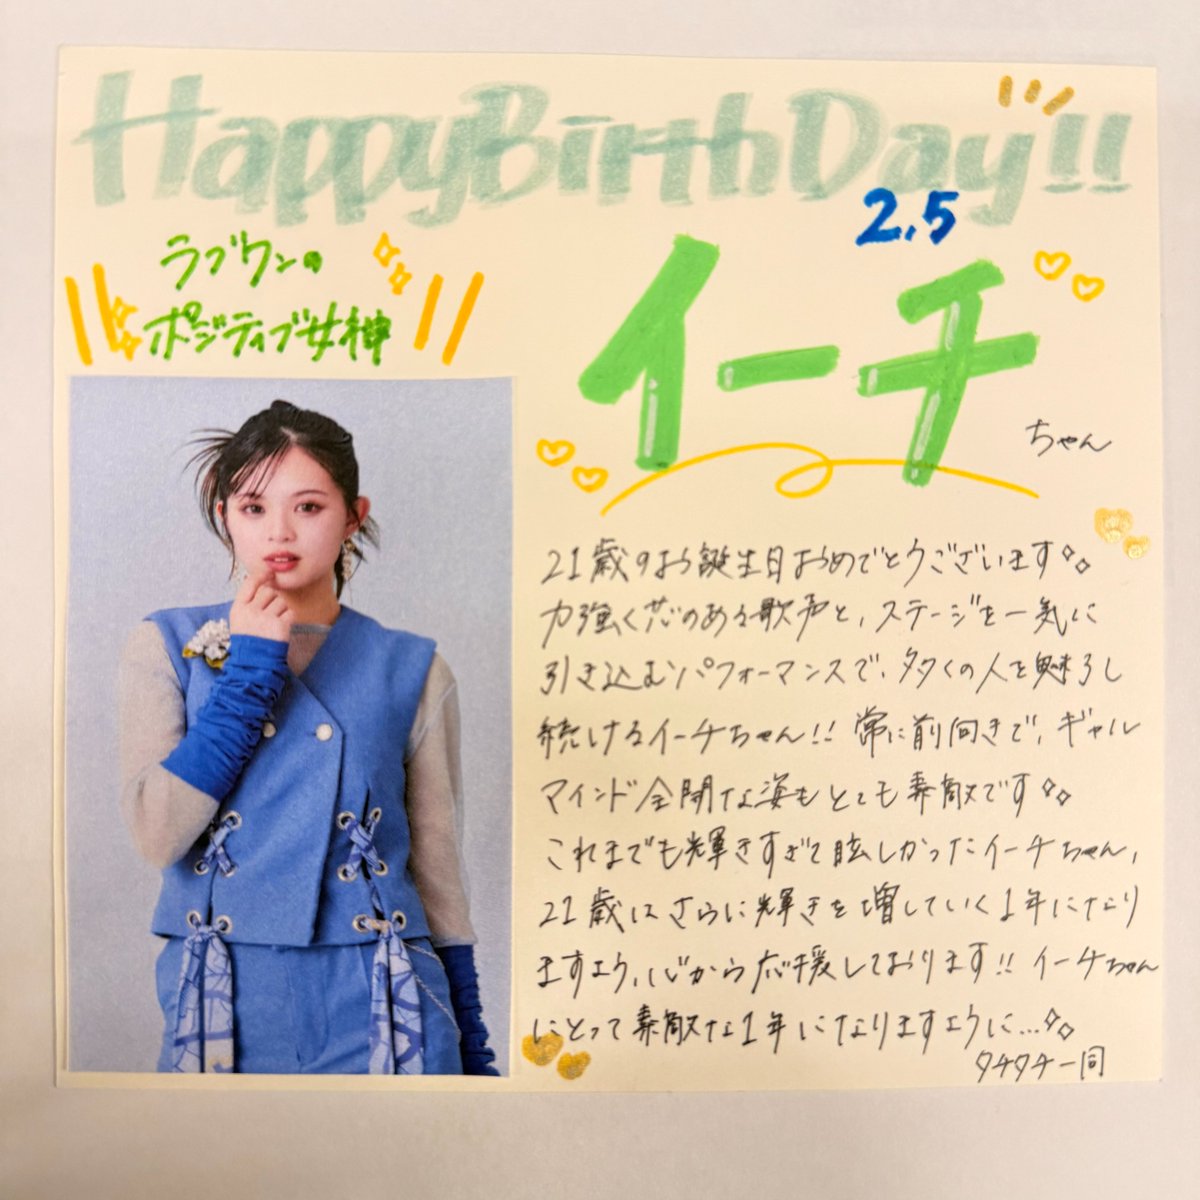 HappyBirthDay!!
2.5
ラブワンの
ポジティブ女神
イーチ
ちゃん
21歳のお誕生日おめでとうございます
力強く芯のある歌声と、ステージを一気に
引き込むパフォーマンスで、多くの人を魅了し
続けるイーチちゃん!! 常に前向きで、ギャル
マインド全開な姿もとても素敵です
これまでも輝きすぎて眩しかったイーチちゃん、
21歳はさらに輝きを増していく1年になり
ますよう、心から応援しております!! イーチちゃん
にとって素敵な1年になりますように…
タチタチ一同